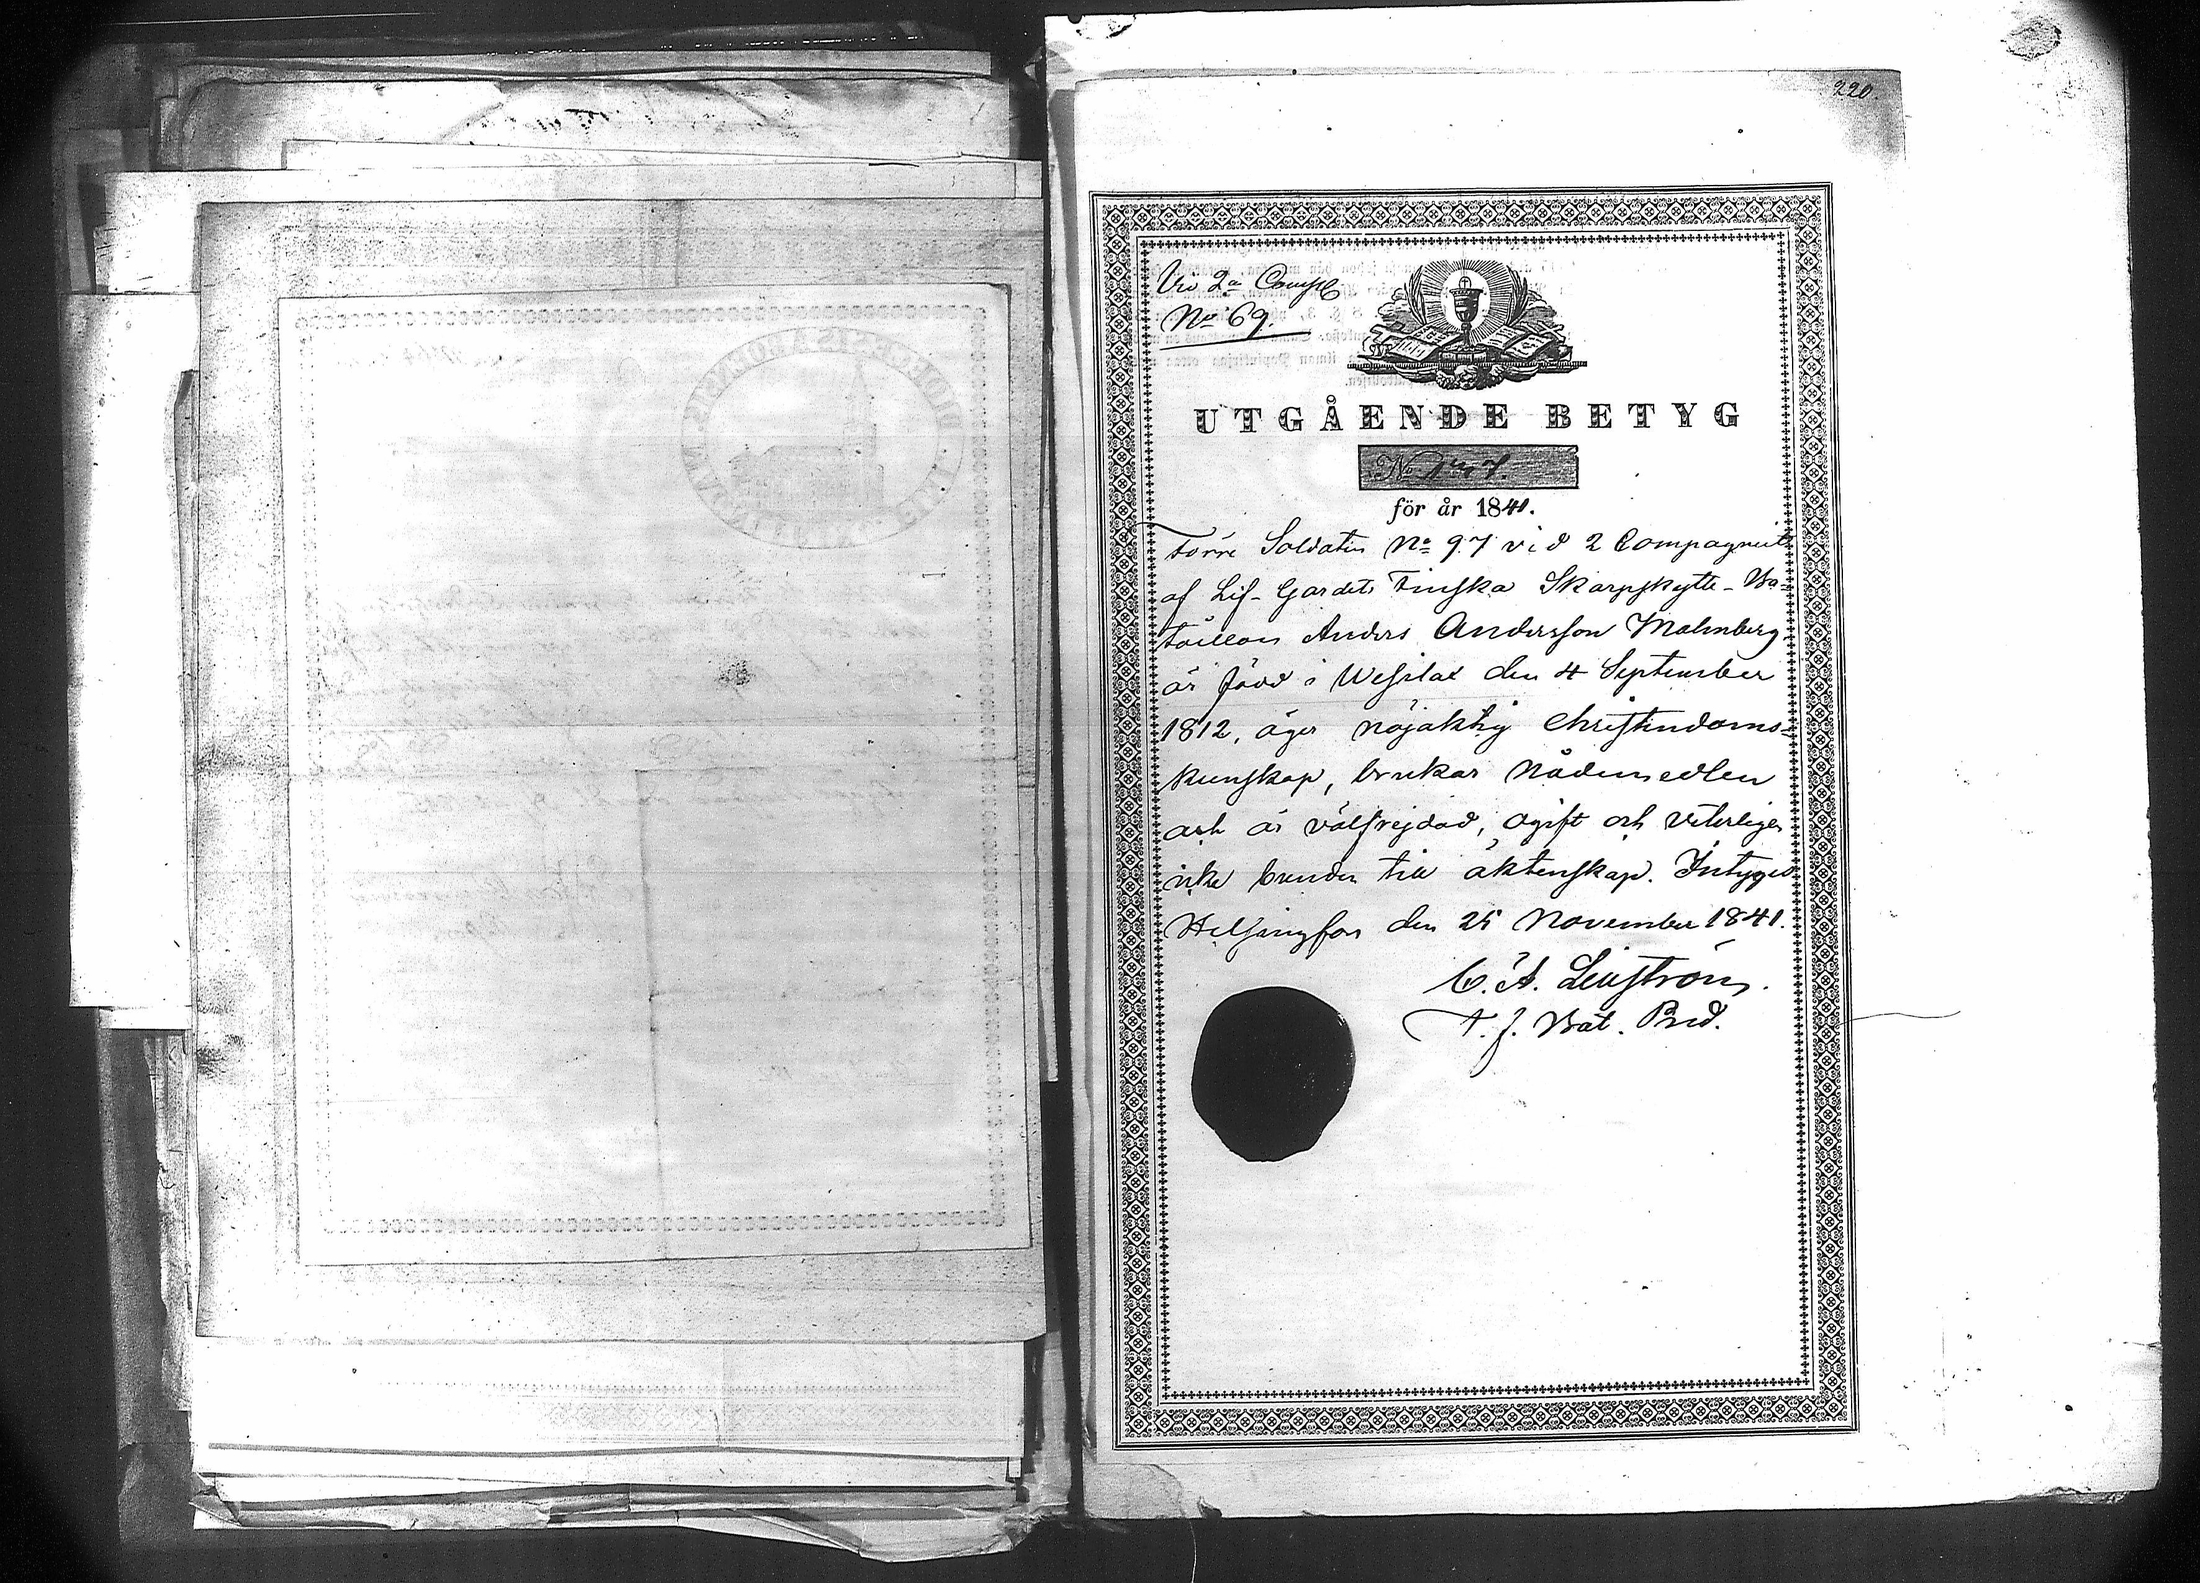 220.
Vid 2a Comp
No 69.
UTGÅENDE BETYG
No
för år 1841.
Förre Soldaten No 97 vid 2 Compagniet
af Lif-Gardets Finska Skarpskytte-Ba=
taillon Anders Andersson Malmberg
är född i Wesilax den 4 September
1812, äger nöjaktig Christendoms=
kunskap, brukar Nådemedlen
och är välfrejdad, ogift och veterligen
icke bunden till äktenskap. Intygas
Helsingfors den 25 November 1841.
C. A. Lenström.
T. f. Bat. Pred.